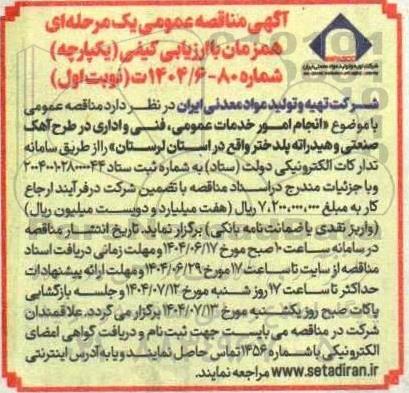 آگهی مناقصه عمومی یک مرحله‌ای
همزمان با ارزیابی کیفی (یکپارچه)
شماره ۸۰-۱۴۰۴/۶ت (نوبت اول)
شرکت تهیه و تولید مواد معدنی ایران
شرکت تهیه و تولید مواد معدنی ایران در نظر دارد مناقصه عمومی
با موضوع «انجام امور خدمات عمومی، فنی و اداری در طرح آهک
صنعتی و هیدراته پلدختر واقع در استان لرستان» را از طریق سامانه
تدارکات الکترونیکی دولت (ستاد) به شماره ثبت ستاد ۲۰۰۴۰۰۱۰۲۸۰۰۰۰۴۴
و با جزئیات مندرج در اسناد مناقصه با تضمین شرکت در فرآیند ارجاع
کار به مبلغ ۷,۲۰۰,۰۰۰,۰۰۰ ریال (هفت میلیارد و دویست میلیون ریال)
(واریز نقدی یا ضمانت نامه بانکی) برگزار نماید. تاریخ انتشار مناقصه
در سامانه ساعت ۱۰ صبح مورخ ۱۴۰۴/۰۶/۱۷ و مهلت زمانی دریافت اسناد
مناقصه از سایت تا ساعت ۱۷ مورخ ۱۴۰۴/۰۶/۲۹ و مهلت ارائه پیشنهادات
حداکثر تا ساعت ۱۷ روز شنبه مورخ ۱۴۰۴/۰۷/۱۲ و جلسه بازگشایی
پاکات صبح روز یکشنبه مورخ ۱۴۰۴/۰۷/۱۳ برگزار می گردد. علاقمندان
شرکت در مناقصه می بایست جهت ثبت نام و دریافت گواهی امضای
الکترونیکی با شماره ۱۴۵۶ تماس حاصل نمایند و یا به آدرس اینترنتی
www.setadiran.ir مراجعه نمایند.